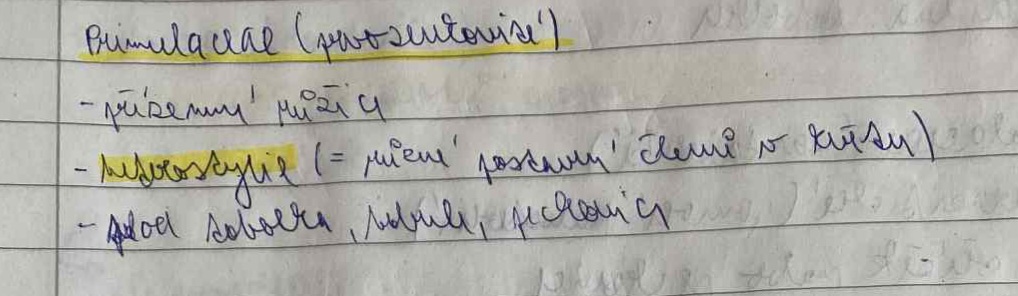 Primulaceae (prvosenkovité)
- přízemní růžice
- heterostylie (= různé postavení členů v květu)
- plod tobolka, bobule, peckovice